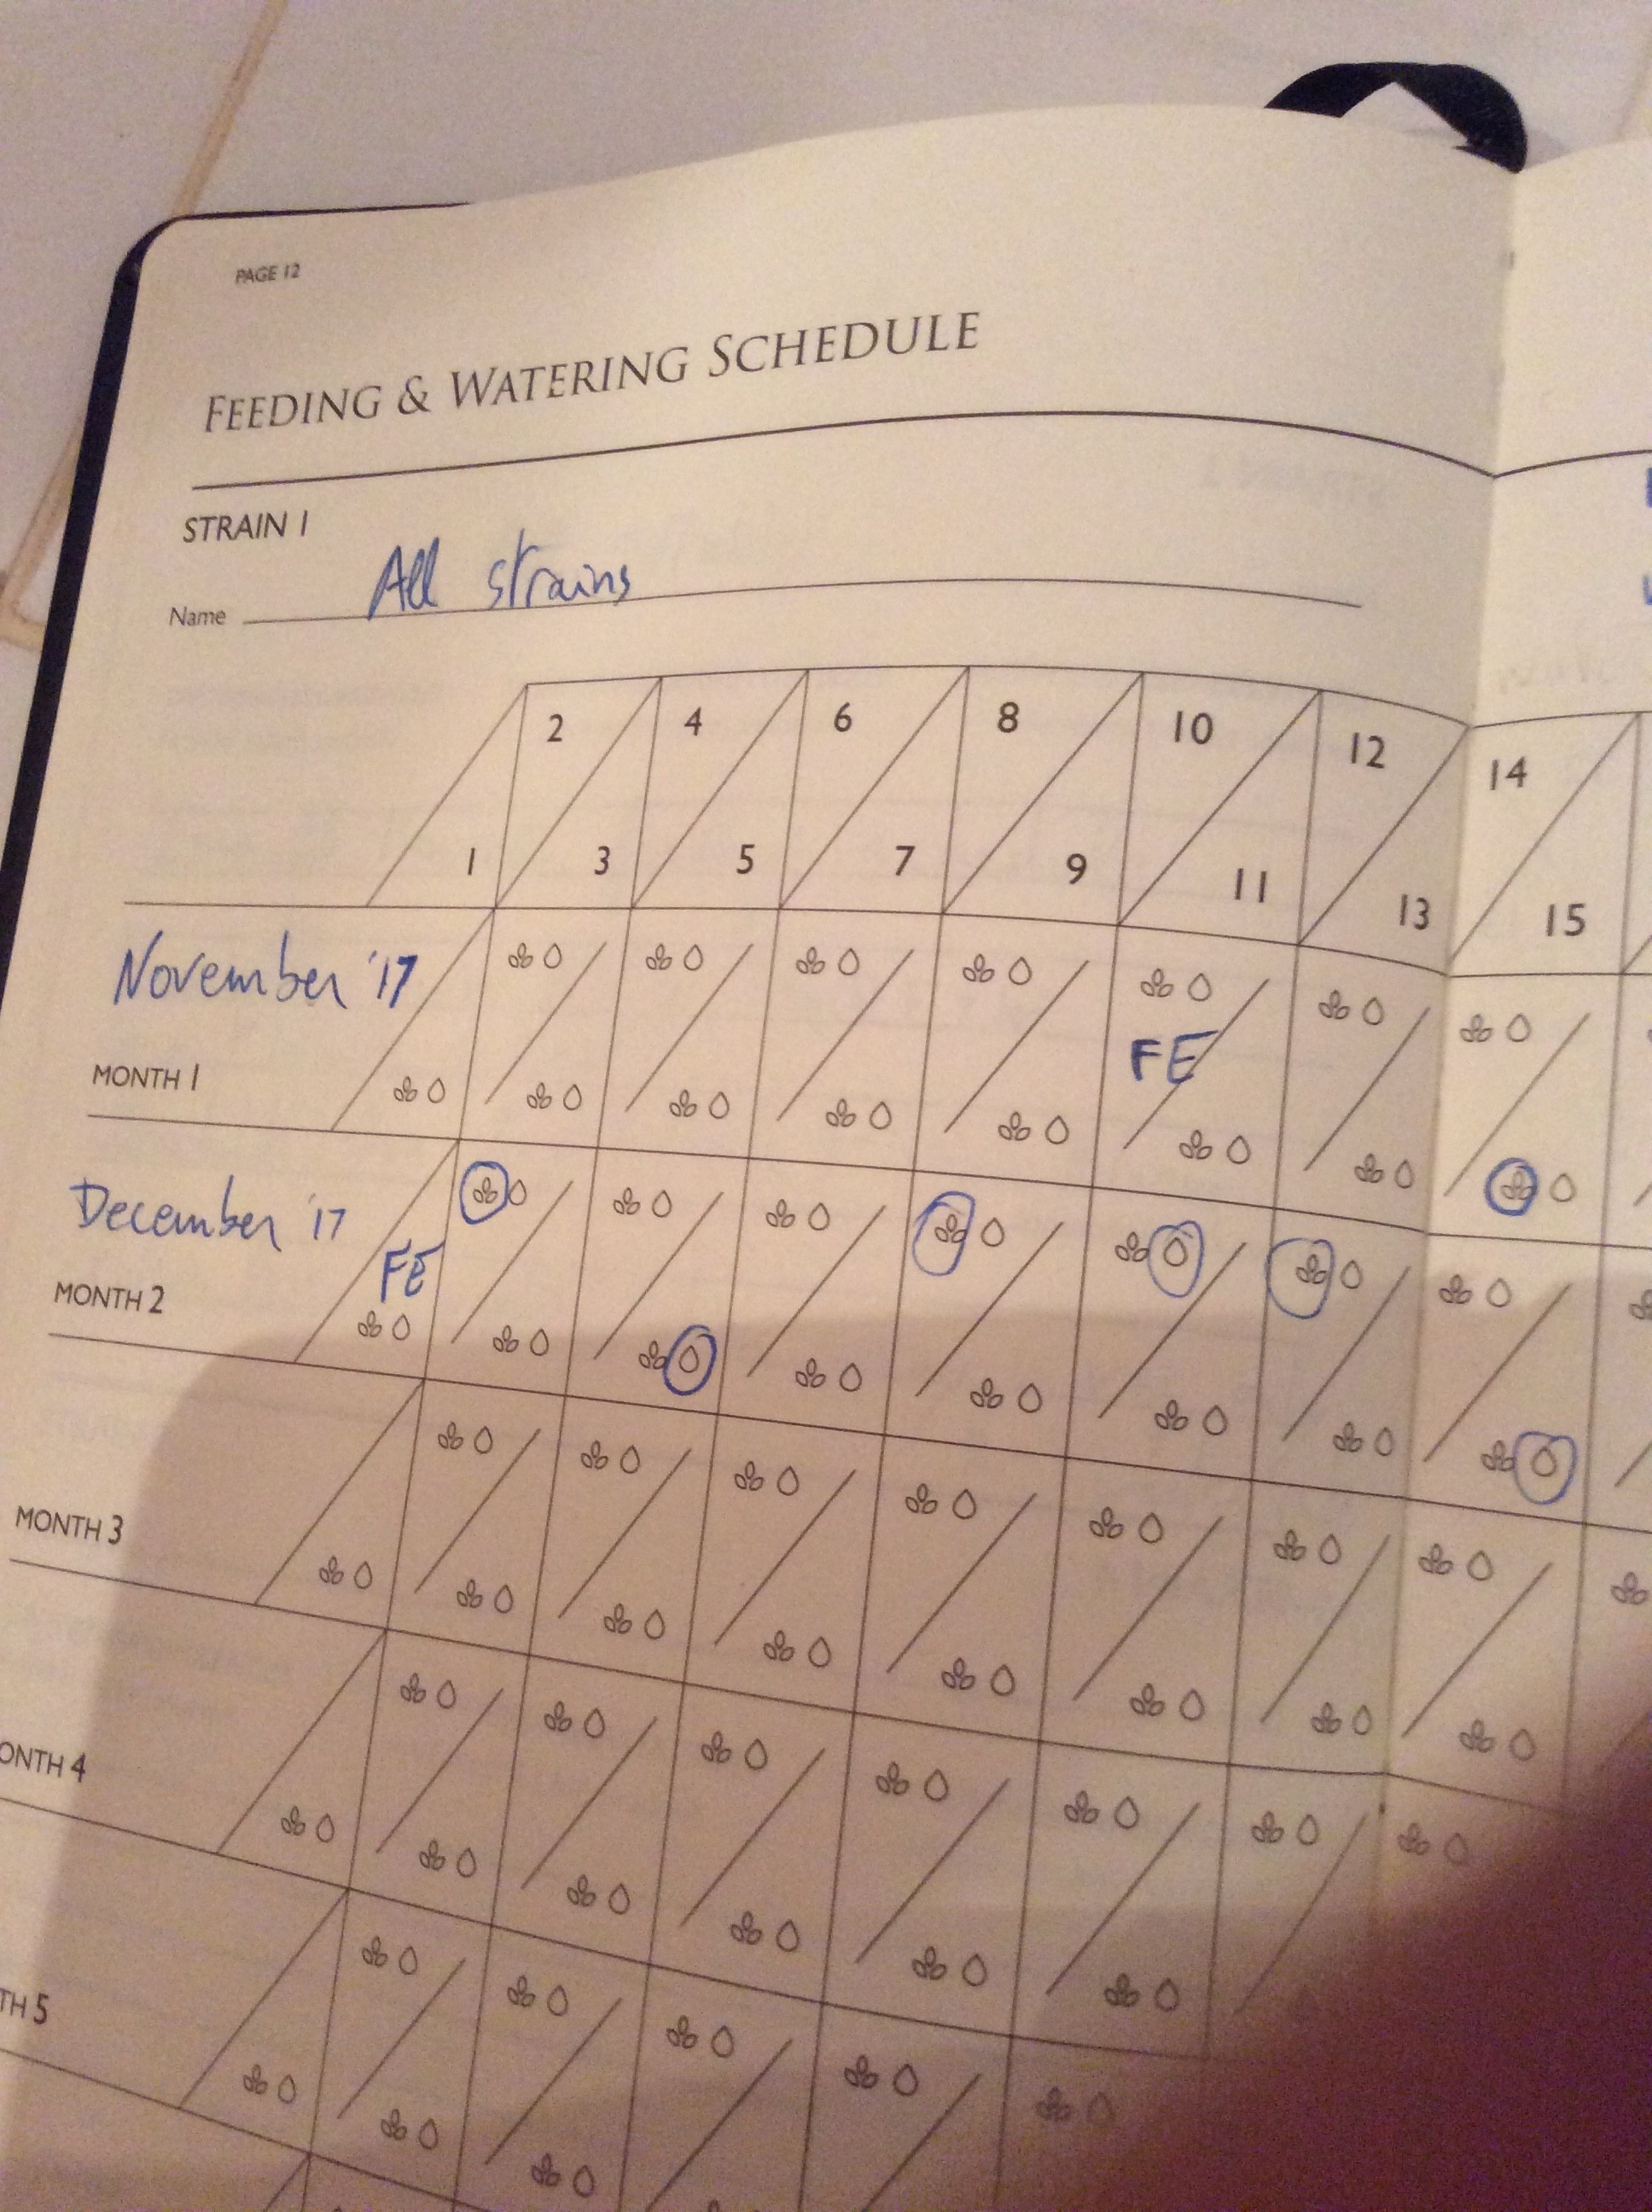 PAGE 12
FEEDING & WATERING SCHEDULE
STRAIN 1
Name All strains
2 4 6 8 10 12 14
1 3 5 7 9 11 13 15
November '17
FE
MONTH 1
December '17
FE
MONTH 2
MONTH 3
ONTH 4
TH 5